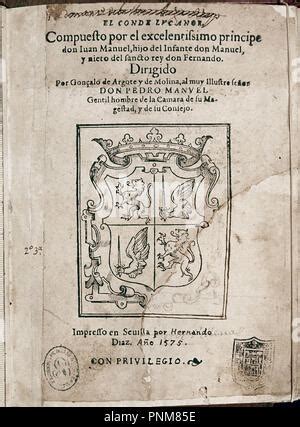 EL CONDE LVCANOR.
Compuesto por el excelentissimo principe
don Iuan Manuel, hijo del Infante don Manuel,
y nieto del sancto rey don Fernando.
Dirigido
Por Gonçalo de Argote y de Molina, al muy Illustre señor
DON PEDRO MANVEL
Gentil hombre de la Camara de su Ma
gestad, y de su Consejo.
2º 3ª
Impresso en Seuilla por Hernando
Diaz. Año 1575.
CON PRIVILEGIO.
alamy
PNM85E
www.alamy.com